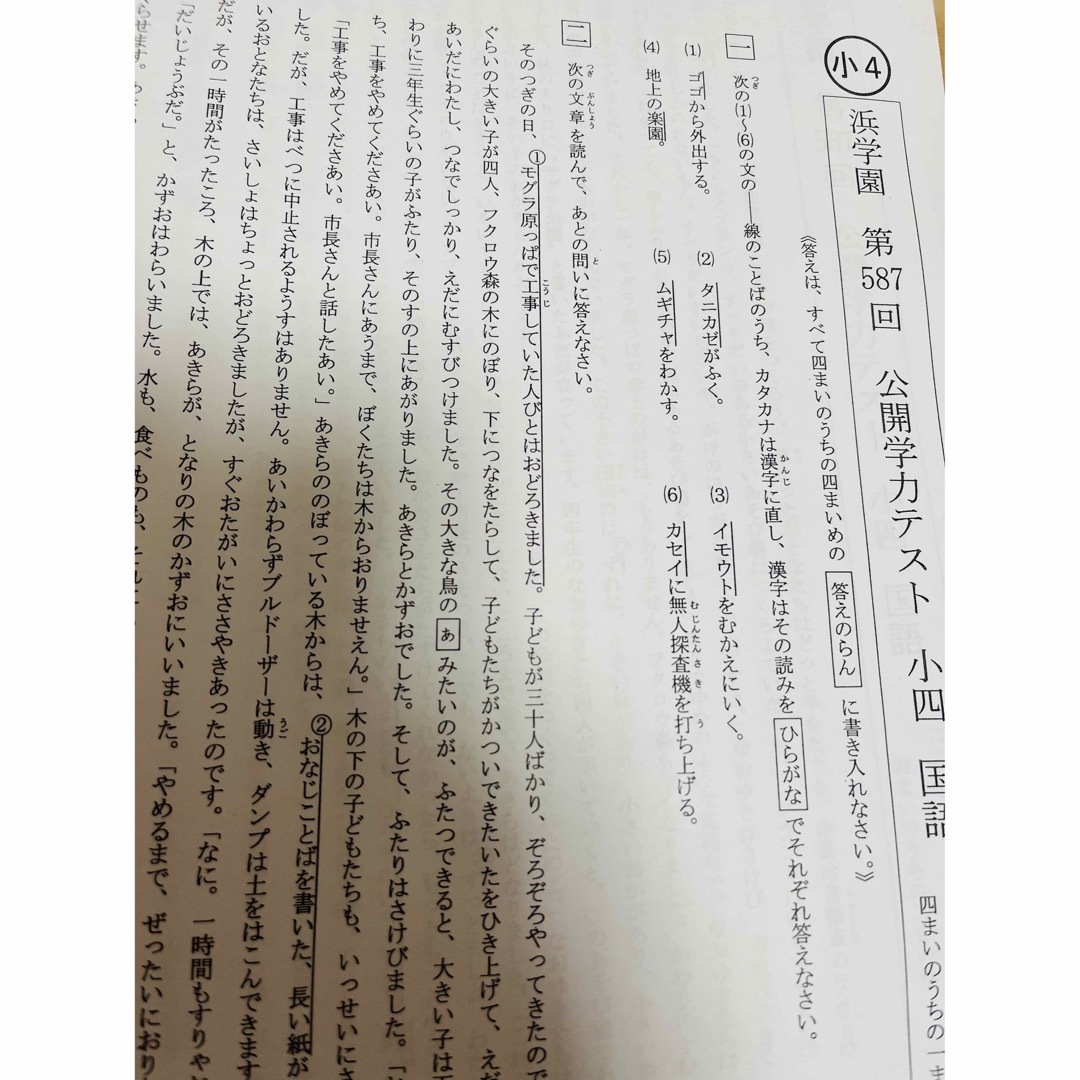 小4
浜学園 第587回 公開学力テスト 小四 国語
四まいのうちの一ま
《答えは、すべて四まいのうちの四まいめの 答えのらん に書き入れなさい。》
一 次の⑴〜⑹の文の――線のことばのうち、カタカナは漢字に直し、漢字はその読みを ひらがな でそれぞれ答えなさい。
⑴ ゴゴから外出する。 ⑵ タニカゼがふく。 ⑶ イモウトをむかえにいく。
⑷ 地上の楽園。 ⑸ ムギチャをわかす。 ⑹ カセイに無人探査機を打ち上げる。
二 次の文章を読んで、あとの問いに答えなさい。
そのつぎの日、①モグラ原っぱで工事していた人びとはおどろきました。子どもが三十人ばかり、ぞろぞろやってきたので
ぐらいの大きい子が四人、フクロウ森の木にのぼり、下につなをたらして、子どもたちがかついできたいたをひき上げて、えだ
あいだにわたし、つなでしっかり、えだにむすびつけました。その大きな鳥の あ みたいのが、ふたつできると、大きい子は
わりに三年生ぐらいの子がふたり、そのすの上にあがりました。あきらとかずおでした。そして、ふたりはさけびました。
ち、工事をやめてくださあい。市長さんにあうまで、ぼくたちは木からおりませえん。」木の下の子どもたちも、いっせいにさ
「工事をやめてくださあい。市長さんと話したあい。」あきらののぼっている木からは、②おなじことばを書いた、長い紙が
した。だが、工事はべつに中止されるようすはありません。あいかわらずブルドーザーは動き、ダンプは土をはこんできます
いるおとなたちは、さいしょはちょっとおどろきましたが、すぐおたがいにささやきあったのです。「なに。一時間もすりゃ
だが、その一時間がたったころ、木の上では、あきらが、となりの木のかずおにいいました。「やめるまで、ぜったいにおり
「だいじょうぶだ。」と、かずおはわらいました。水も、食べものも、
らせます。